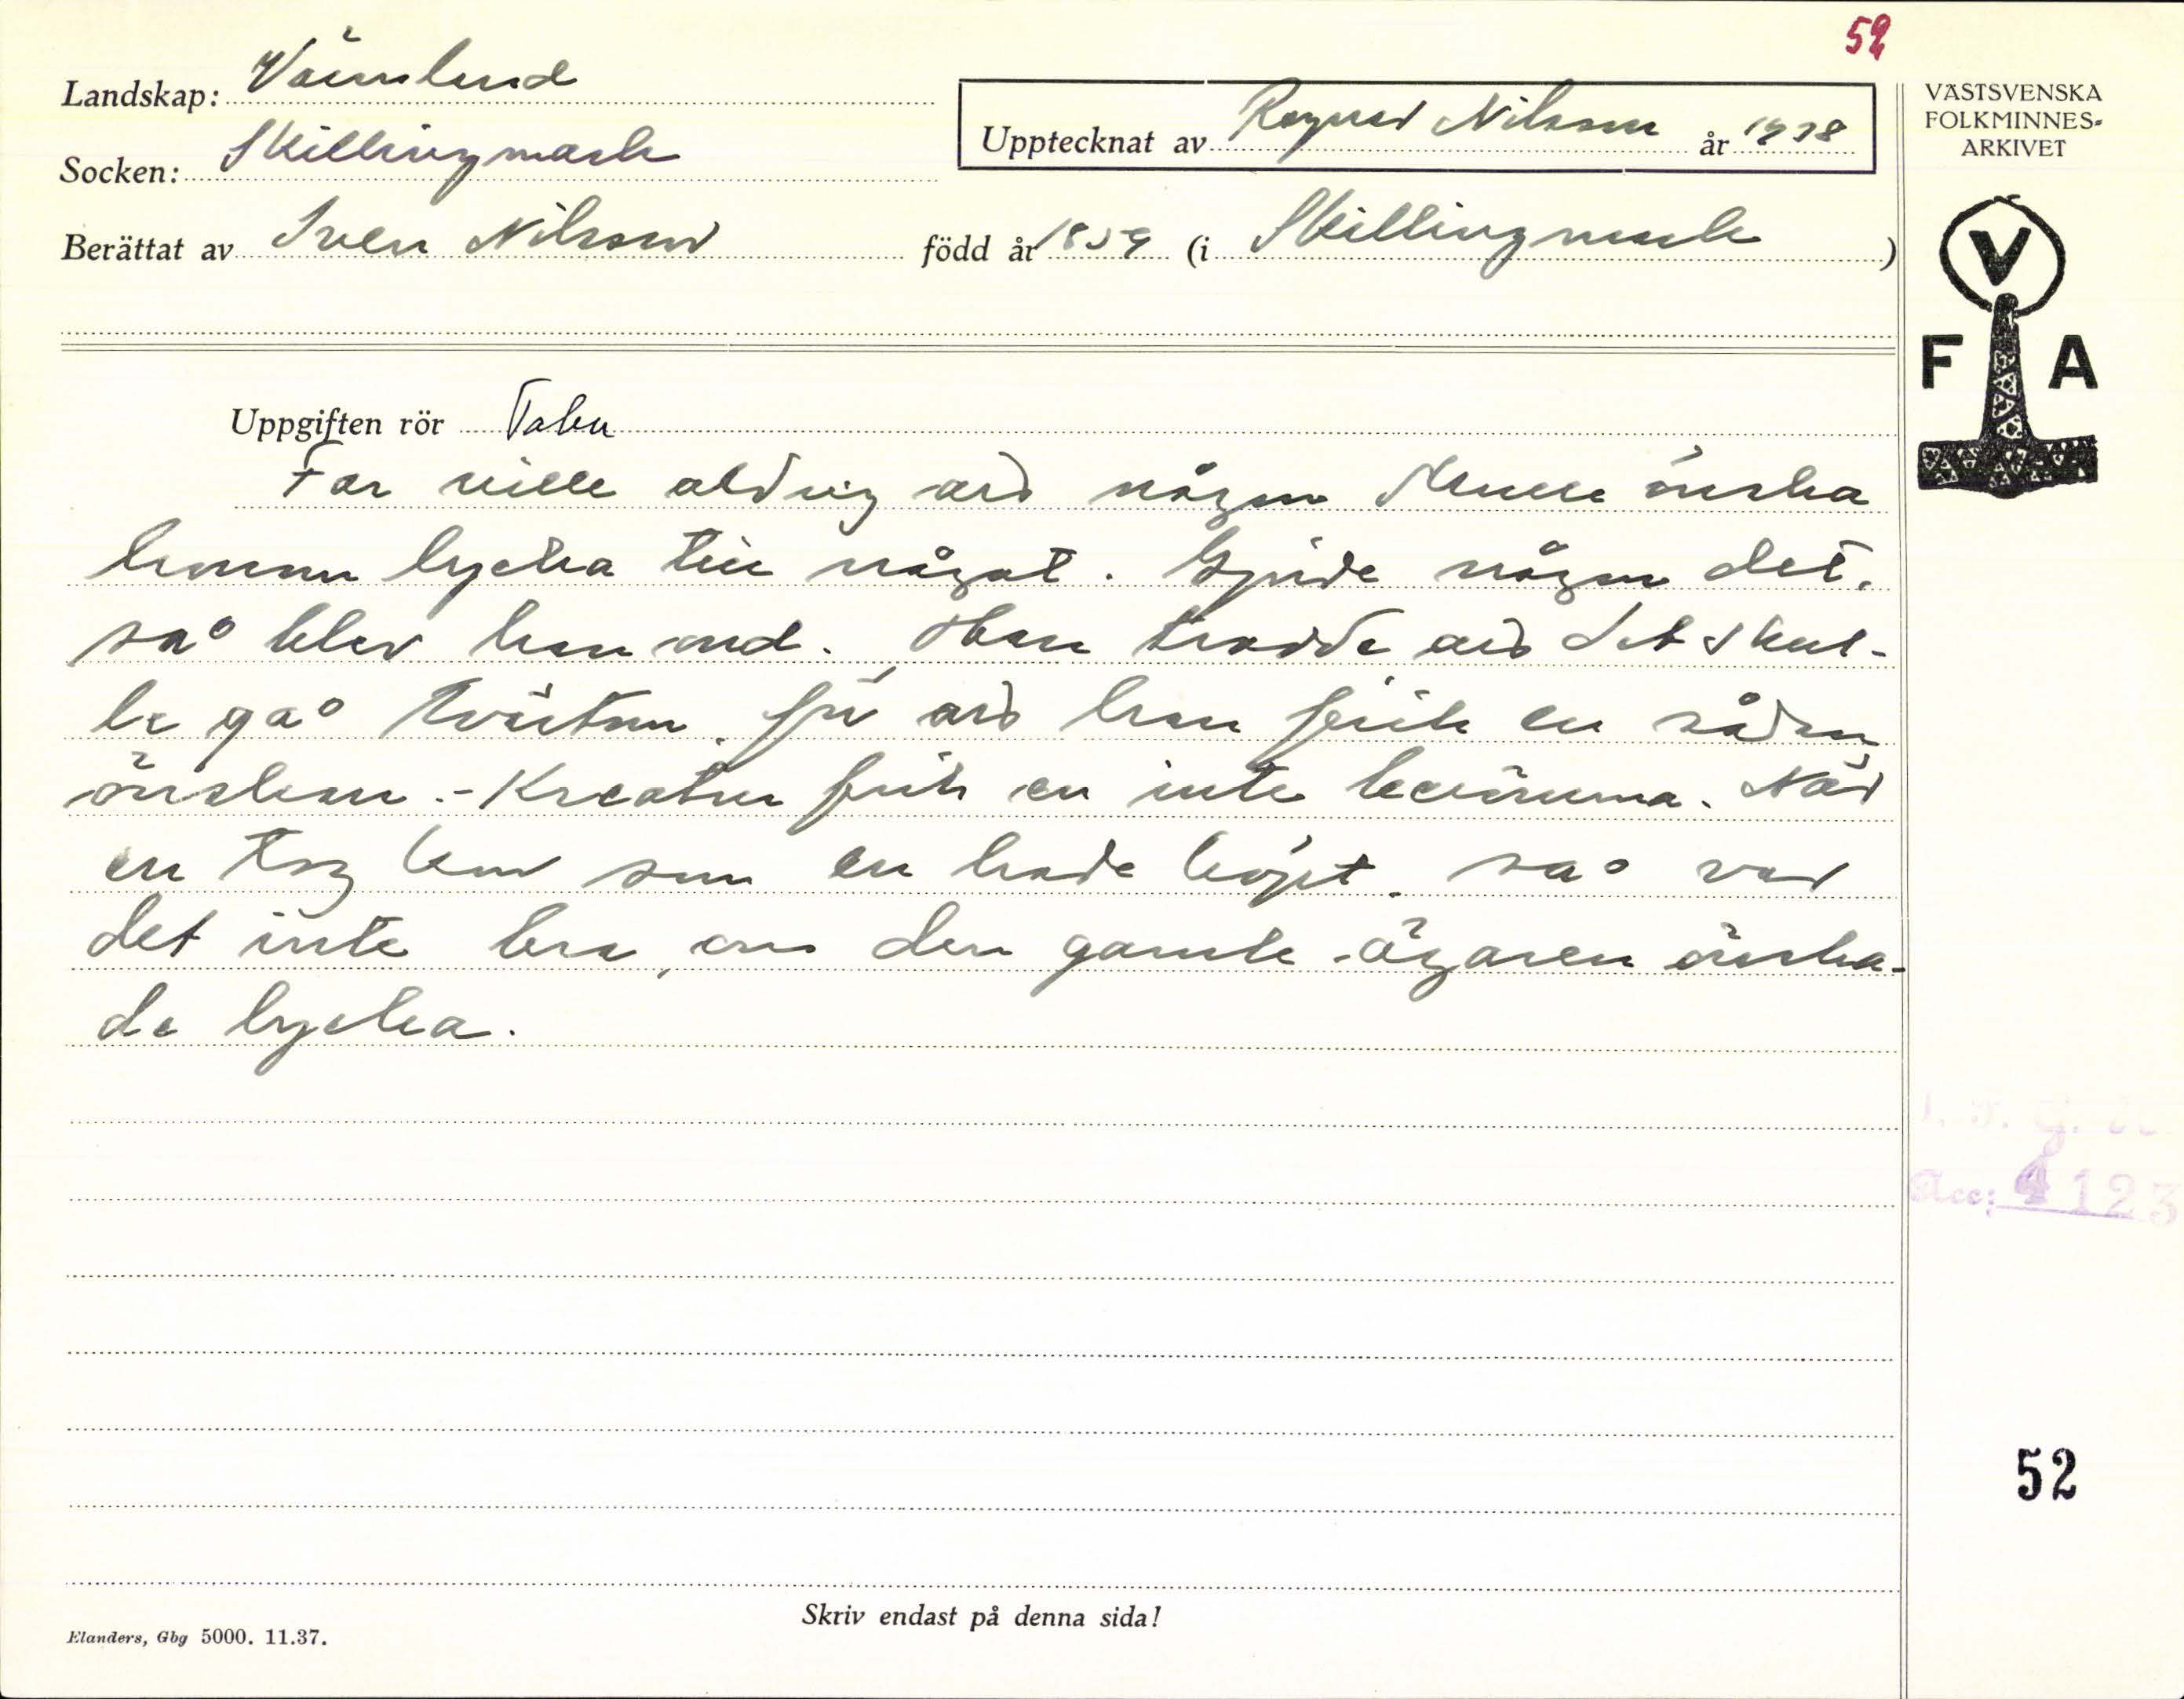 52
Landskap: Värmland
Socken: Skillingmark
Berättat av Sven Nilsson född år 1859 (i Skillingmark)
Upptecknat av Ragnar Nilsson år 1938
VÄSTSVENSKA
FOLKMINNES-
ARKIVET
V
F A
Uppgiften rör Tabu
Far ville aldrig att någon skulle önska
honom lycka till något. Gjorde någon det.
så blev han ond. Han trodde att det skul-
le gå tvärtom för att han fick en sådan
önskan. - Kreatur fick en inte berömma. När
en tog hem som en hade köpt. så var
det inte bra, om den gamle ägaren önska-
de lycka.
Acc: 4123
52
Skriv endast på denna sida!
Elanders, Gbg 5000. 11.37.